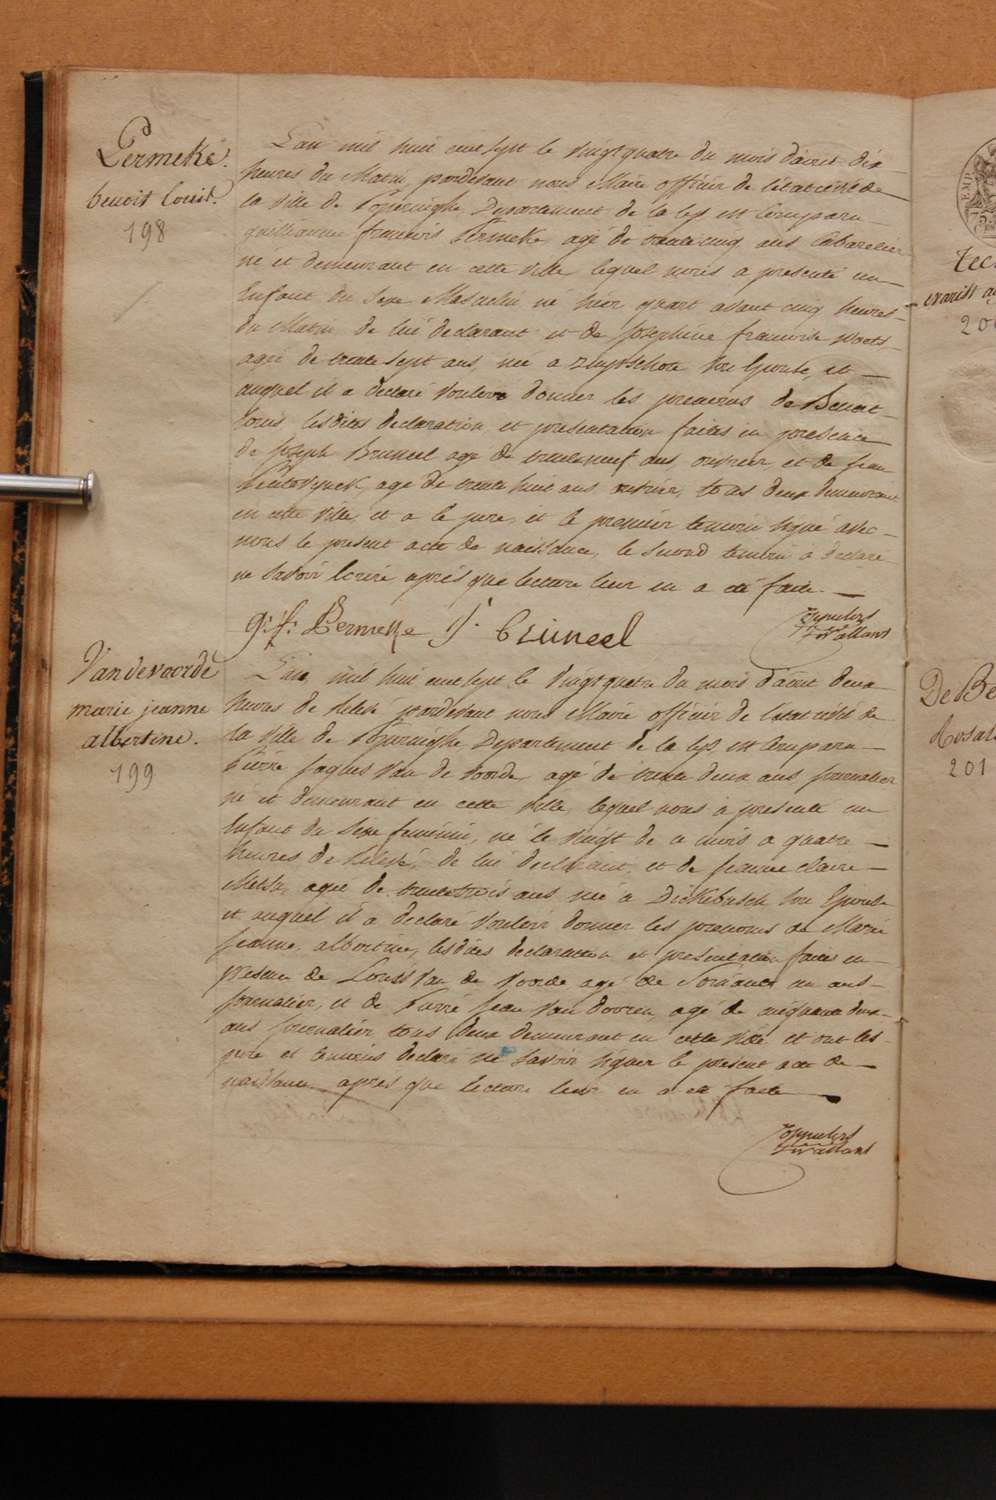 Permeke
benoit louis.
198
L'an mil huit cent sept le vingt quatre du mois d'aout dix
heures du Matin pardevant nous Maire officier de l'état civil de
la ville de Poperinghe Departement de la Lys est Comparu
guillaume francois Permeke agé de trente cinq ans Cabaretier
né et demeurant en cette ville lequel nous a presenté un
Enfant du Sexe Masculin né hier quart avant cinq heures
du Matin de lui declarant et de Josephine francoise
agée de trente sept ans, née a Zuydschote son Epouse, et
auquel il a declaré vouloir donner les prenoms de Benoit
louis lesdites declaration et presentation faites en presence
de Joseph Bruneel agé de trente neuf ans, ouvrier et de jean
agé de trente huit ans ouvrier, tous deux demeurant
en cette ville, et a le pere, et le premier temoin signé avec
nous le present acte de naissance, le second temoin a declaré
ne savoir Ecrire après que lecture leur en a été faite.
g: f: Permeke J. Bruneel
Vandevoorde
marie jeanne
albertine.
199
L'an mil huit cent sept le vingt quatre du mois d'aout deux
heures de relevée pardevant nous Maire officier de l'état civil de
la ville de Poperinghe Departement de la Lys est Comparu
Pierre Jaques Van de Voorde, agé de trente deux ans journalier
né et demeurant en cette ville, lequel nous a presenté un
Enfant du Sexe feminin, né le vingt de ce mois a quatre
heures de relevée, de lui declarant et de jeanne claire
agée de trente trois ans née a Dickebusch son Epouse
et auquel il a declaré vouloir donner les prenoms de Marie
jeanne albertine, lesdites declaration et presentation faites en
presence de Louis Van de Voorde agé de soixante un ans
journalier, et de Pierre jean Van Dooren, agé de cinquante deux
ans journalier tous deux demeurant en cette ville et ont les
pere et temoins declaré ne savoir signer le present acte de
naissance après que lecture leur en a été faite
De Be
201